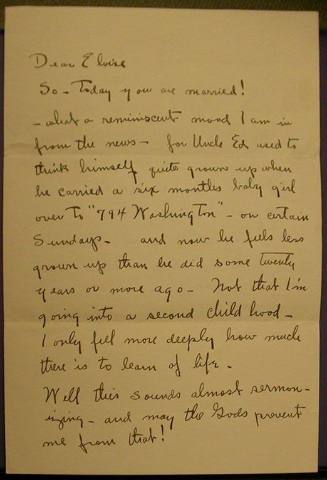 Dear Eloise
So - Today you are married!
- what a reminiscent mood I am in
from the news - for Uncle Ed used to
think himself quite grown up when
he carried a six months baby girl
over to "794 Washington" - on certain
Sundays - and now he feels less
grown up than he did some twenty
years or more ago - Not that I'm
going into a second childhood -
I only feel more deeply how much
there is to learn of life -
Well this sounds almost sermon-
izing - and may the Gods prevent
me from that!